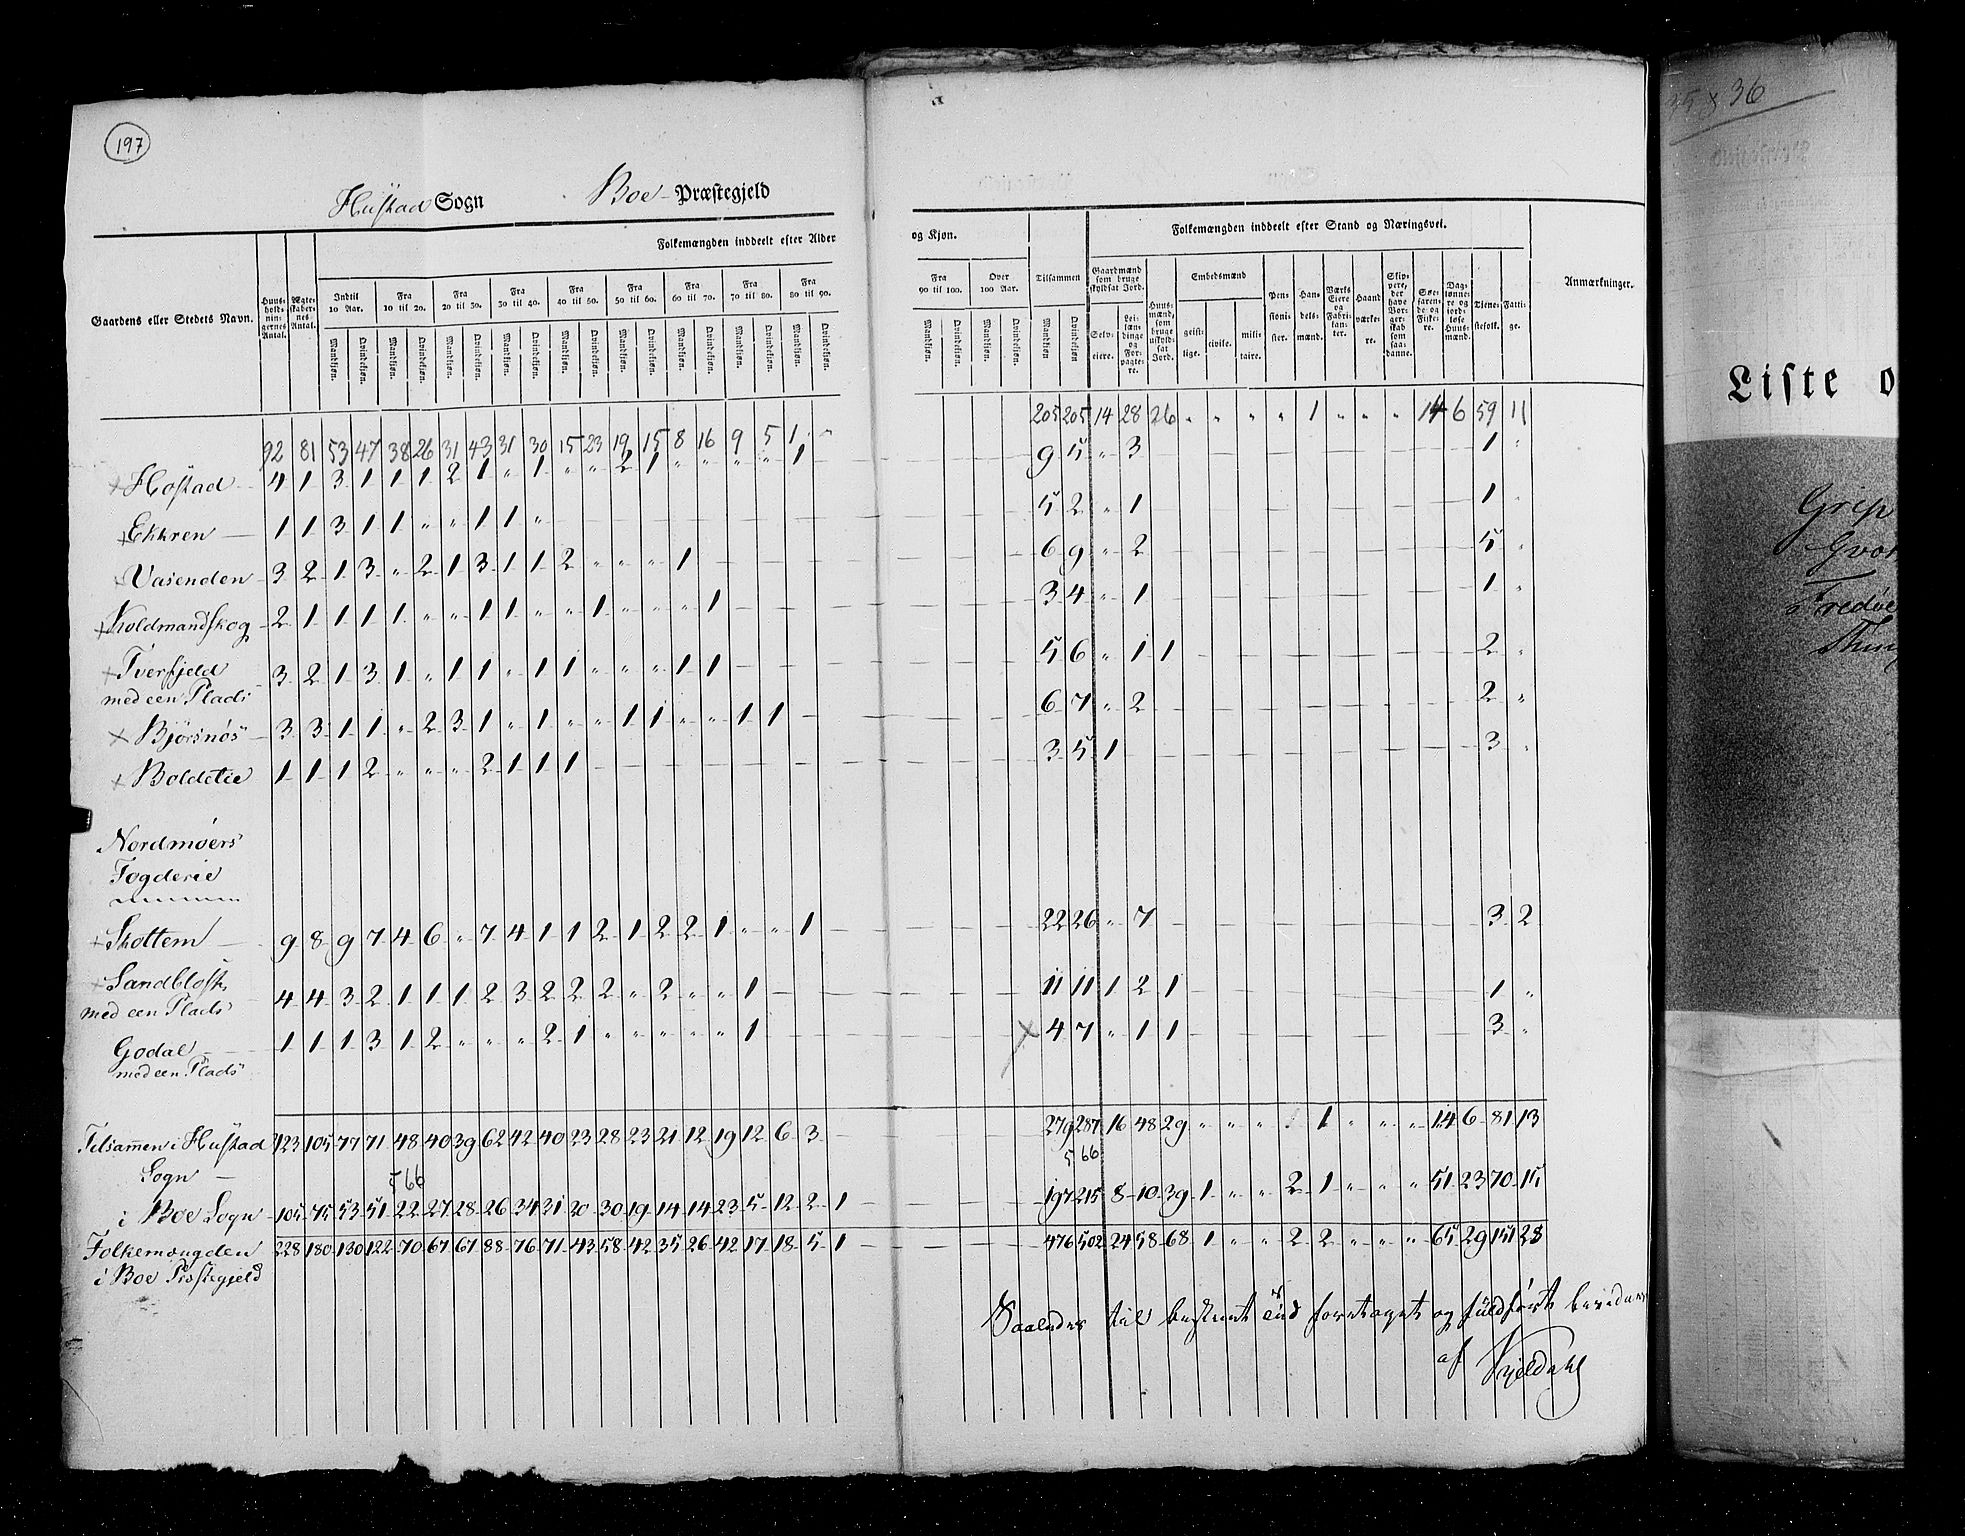 197
Hustad Sogn Boe Præstegjeld
Gaardens eller Stedets Navn. Huusholdningernes Antal. Ægteskabernes Antal. Folkemængden inddeelt efter Alder og Kjøn. Folkemængden inddeelt efter Stand og Næringsvei. Anmærkninger.
Indtil 10 Aar. Fra 10 til 20. Fra 20 til 30. Fra 30 til 40. Fra 40 til 50. Fra 50 til 60. Fra 60 til 70. Fra 70 til 80. Fra 80 til 90. Fra 90 til 100. Over 100 Aar. Tilsammen Gaardmænd som bruge skyldsat Jord. Huusmænd, som bruge uskyldsat Jord. Embedsmænd Pensionister. Handelsmænd. Værks Eiere og Fabrikanter. Haandværkere. Skippere, der have Borgerskab som saadanne. Søefarende og Fiskere. Daglønnere og jordløse Huusmænd. Tjenestefolk. Fattige.
Mandkjøn. Qvindekjøn. Mandkjøn. Qvindekjøn. Mandkjøn. Qvindekjøn. Mandkjøn. Qvindekjøn. Mandkjøn. Qvindekjøn. Mandkjøn. Qvindekjøn. Mandkjøn. Qvindekjøn. Mandkjøn. Qvindekjøn. Mandkjøn. Qvindekjøn. Mandkjøn. Qvindekjøn. Mandkjøn. Qvindekjøn. Mandkjøn Qvindekjøn. Selveiere. Leilændinge og Forpagtere. geistlige. civile. militaire.
92 81 53 47 38 26 31 43 31 30 15 23 19 15 8 16 9 5 1 " 205 205 14 28 26 " " " " 1 " " " 14 6 59 11
+ Hostad 4 1 3 1 1 1 2 1 " 1 " " 2 1 " " " " 1 — 9 5 " 3 — 1 "
+ Ekkren — 1 1 3 1 1 " " 1 1 " — 5 2 " 1 — 1 "
+ Vasenden 3 2 1 3 " 2 1 3 1 1 2 " " " 1 — 6 9 " 2 — 5 "
+ Koldmandskog 2 1 1 1 1 " " 1 1 " " 1 " " " 1 — 3 4 " 1 — 1 "
+ Tverfjeld 3 2 1 3 1 " 1 1 " 1 1 " " " 1 1 — 5 6 " 1 1 — 2 "
med een Plads
× Bjørsnøs 3 3 1 1 " 2 3 1 " 1 " " 1 1 " " 1 1 — 6 7 " 2 — 2 "
× Boldelie 1 1 1 2 " " " 2 1 1 1 — 3 5 1 — 3 "
Nordmøers
Fogderie
+ Skottem — 9 8 9 7 4 6 " 7 4 1 1 2 1 2 2 1 " " 1 — 22 26 " 7 — 3 2
× Sandblost 4 4 3 2 1 1 1 2 3 2 2 2 " 2 " " 1 — 11 11 1 2 1 — 1 "
med een Plads
Godal — 1 1 1 3 1 2 " " " 2 1 " " " " " 1 — × 4 7 " 1 1 — 3 "
med een Plads
Tilsam̅en i Hustad 123 105 77 71 48 40 39 62 42 40 23 28 23 21 12 19 12 6 3 — 279 287 16 48 29 " " " 1 " " " 14 6 81 13
Sogn — 566 566
i Boe Sogn 105 75 53 51 22 27 28 26 34 31 20 30 19 14 14 23 5 12 2 1 — 197 215 8 10 39 1 " " 2 1 " " " 51 23 70 15
Folkemængden 228 180 130 122 70 67 67 88 76 71 43 58 42 35 26 42 17 18 5 1 — 476 502 24 58 68 1 " " 2 2 " " " 65 29 151 28
i Boe Præstegjeld
Saaledes til bestemt Tid foretaget og fuldført bevidnes
af Kjeldahl
35 × 36
Liste o
Grip
Qver
Fredøe